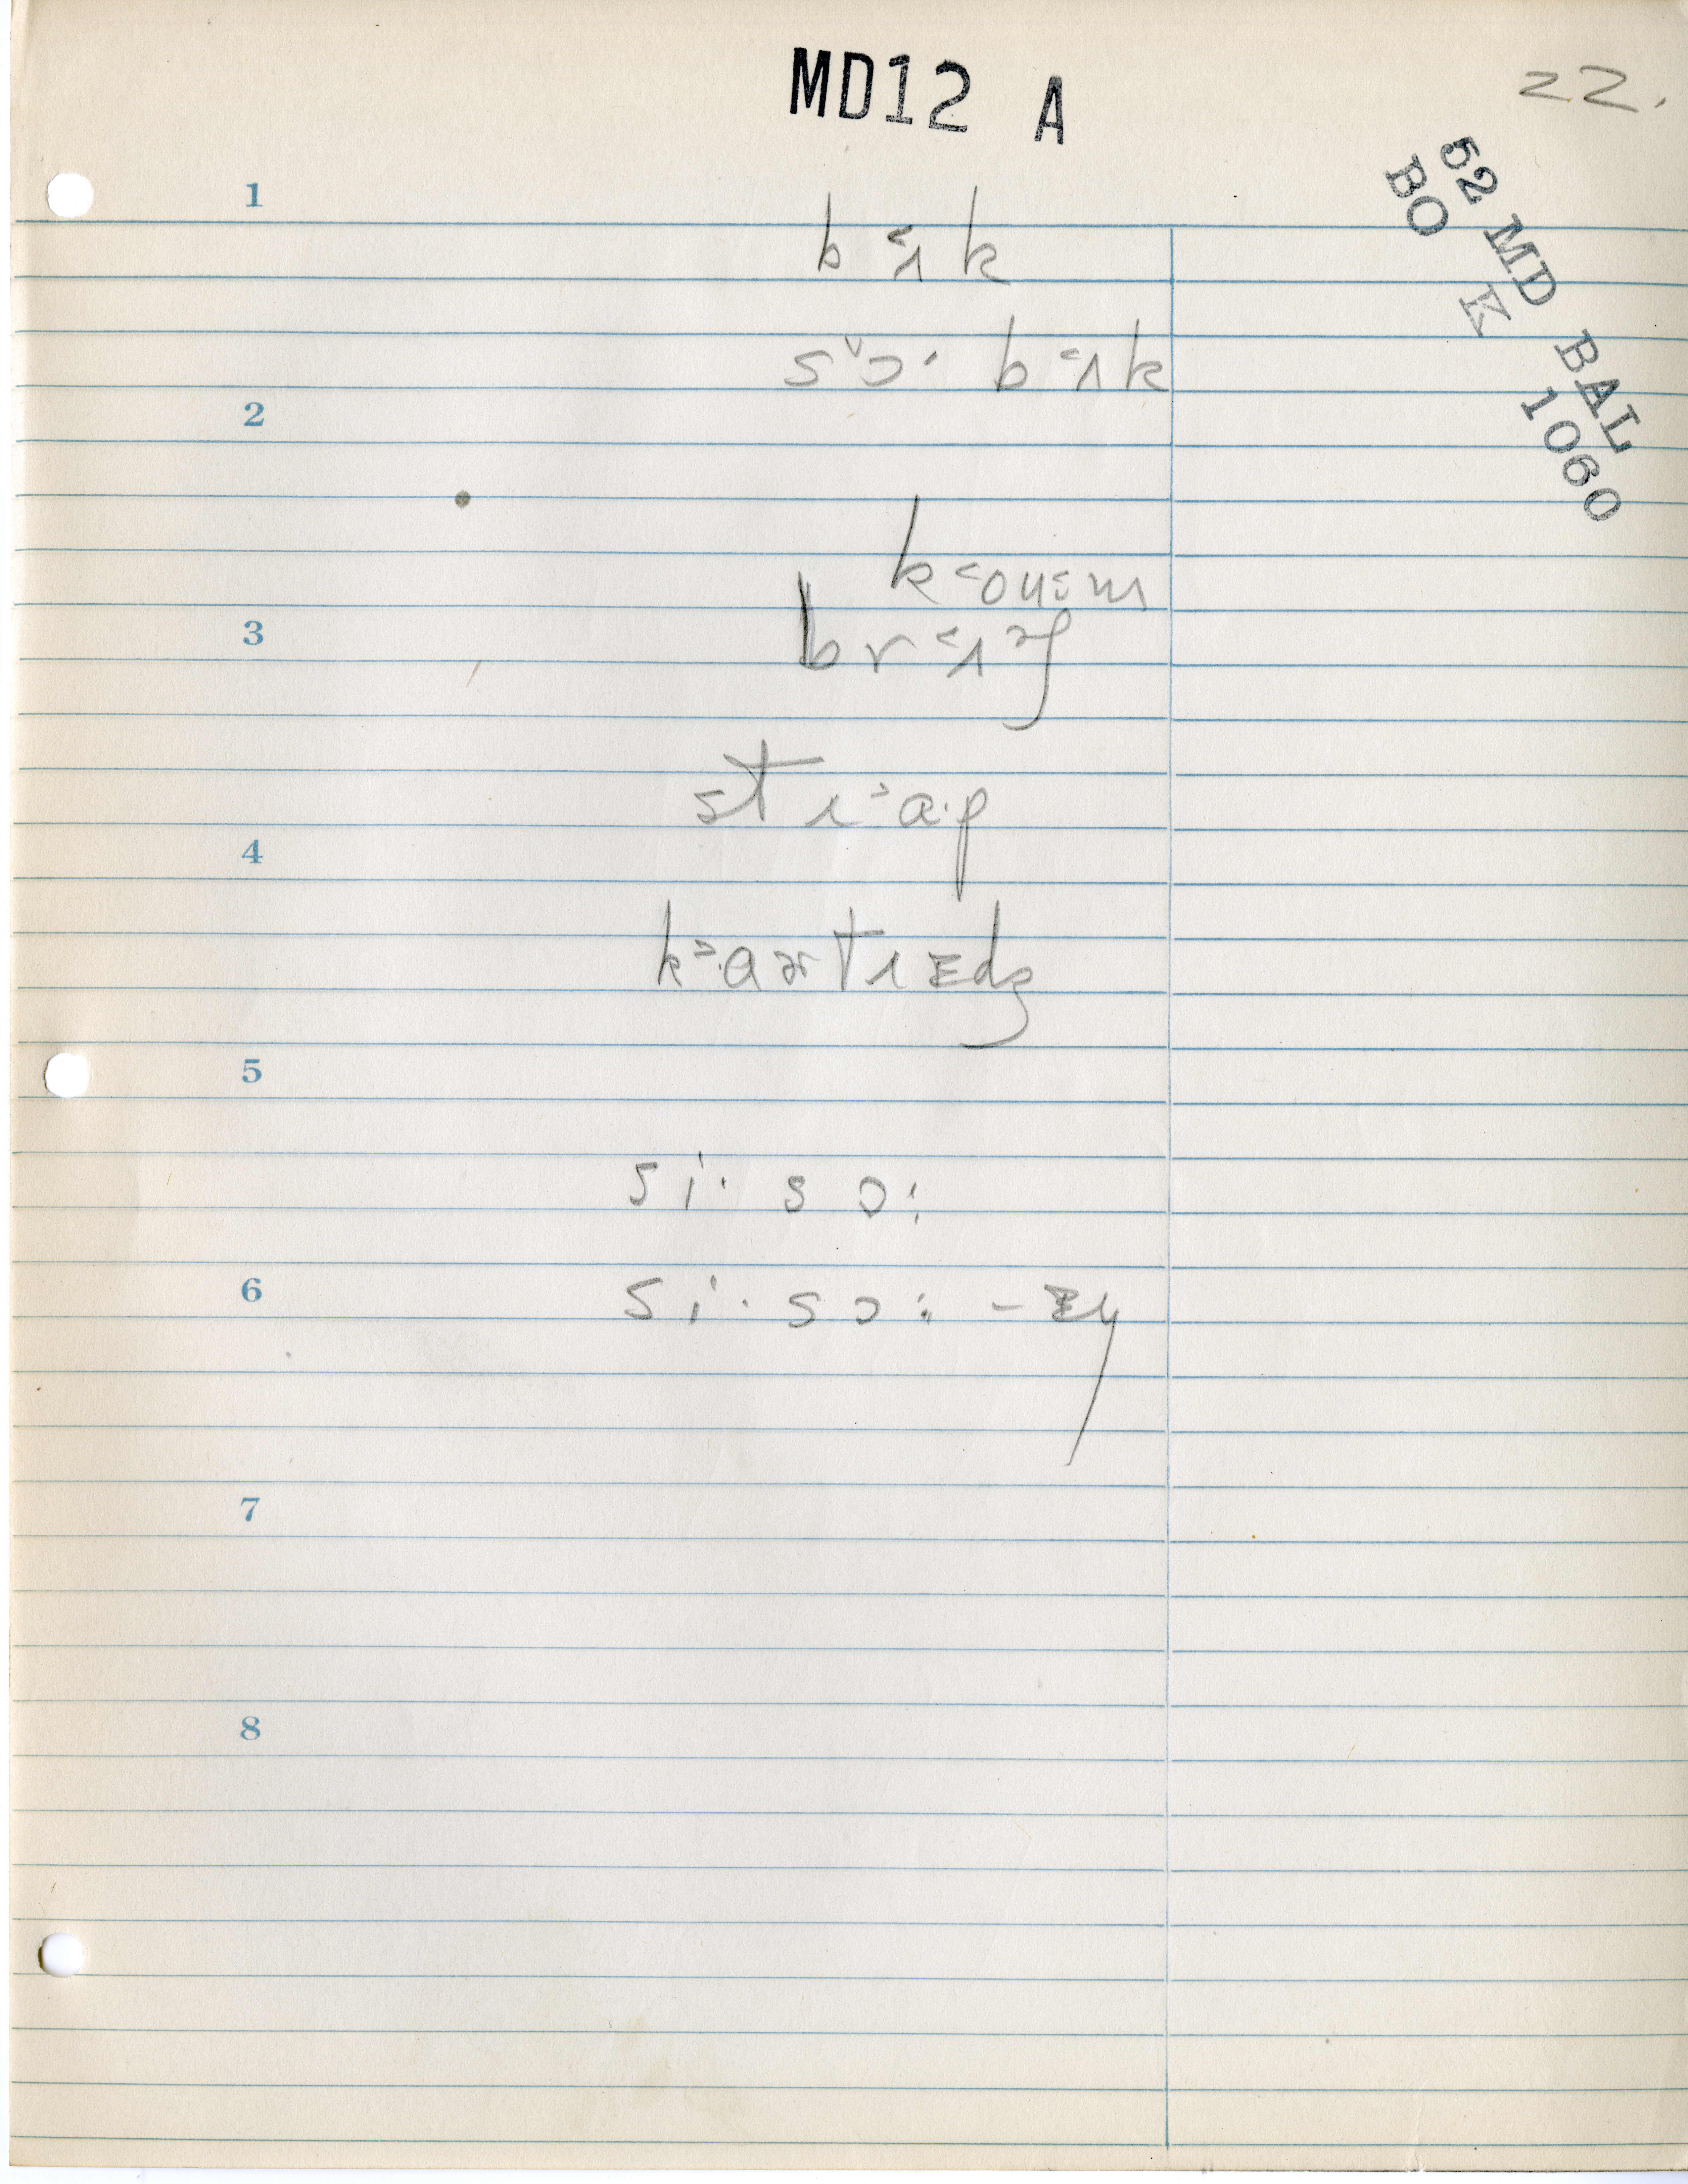 MD12 A
22.
52 MD BAL
BO K 1060
1
b˂ɪk
sɔ̌· b˂ɪk
2
k˂oʊ˂m
3
br˂ɪɚʃ
str˃a·p
4
k˃·aɚtrɪdʒ
5
si· sɔ:
6
si· sɔ: – ɪŋ
7
8